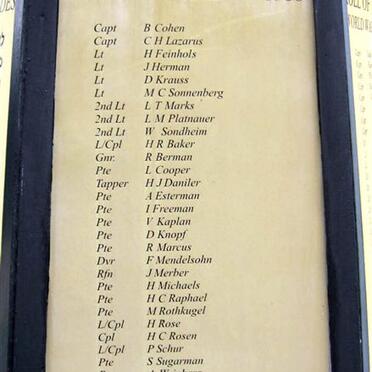 Capt B Cohen
Capt C H Lazarus
Lt H Feinhols
Lt J Herman
Lt D Krauss
Lt M C Sonnenberg
2nd Lt L T Marks
2nd Lt L M Platnauer
2nd Lt W Sondheim
L/Cpl H R Baker
Gnr. R Berman
Pte L Cooper
Tapper H J Daniler
Pte A Esterman
Pte I Freeman
Pte V Kaplan
Pte D Knopf
Pte R Marcus
Dvr F Mendelsohn
Rfn J Merber
Pte H Michaels
Pte H C Raphael
Pte M Rothkugel
L/Cpl H Rose
Cpl H C Rosen
L/Cpl P Schur
Pte S Sugarman
ROLL OF